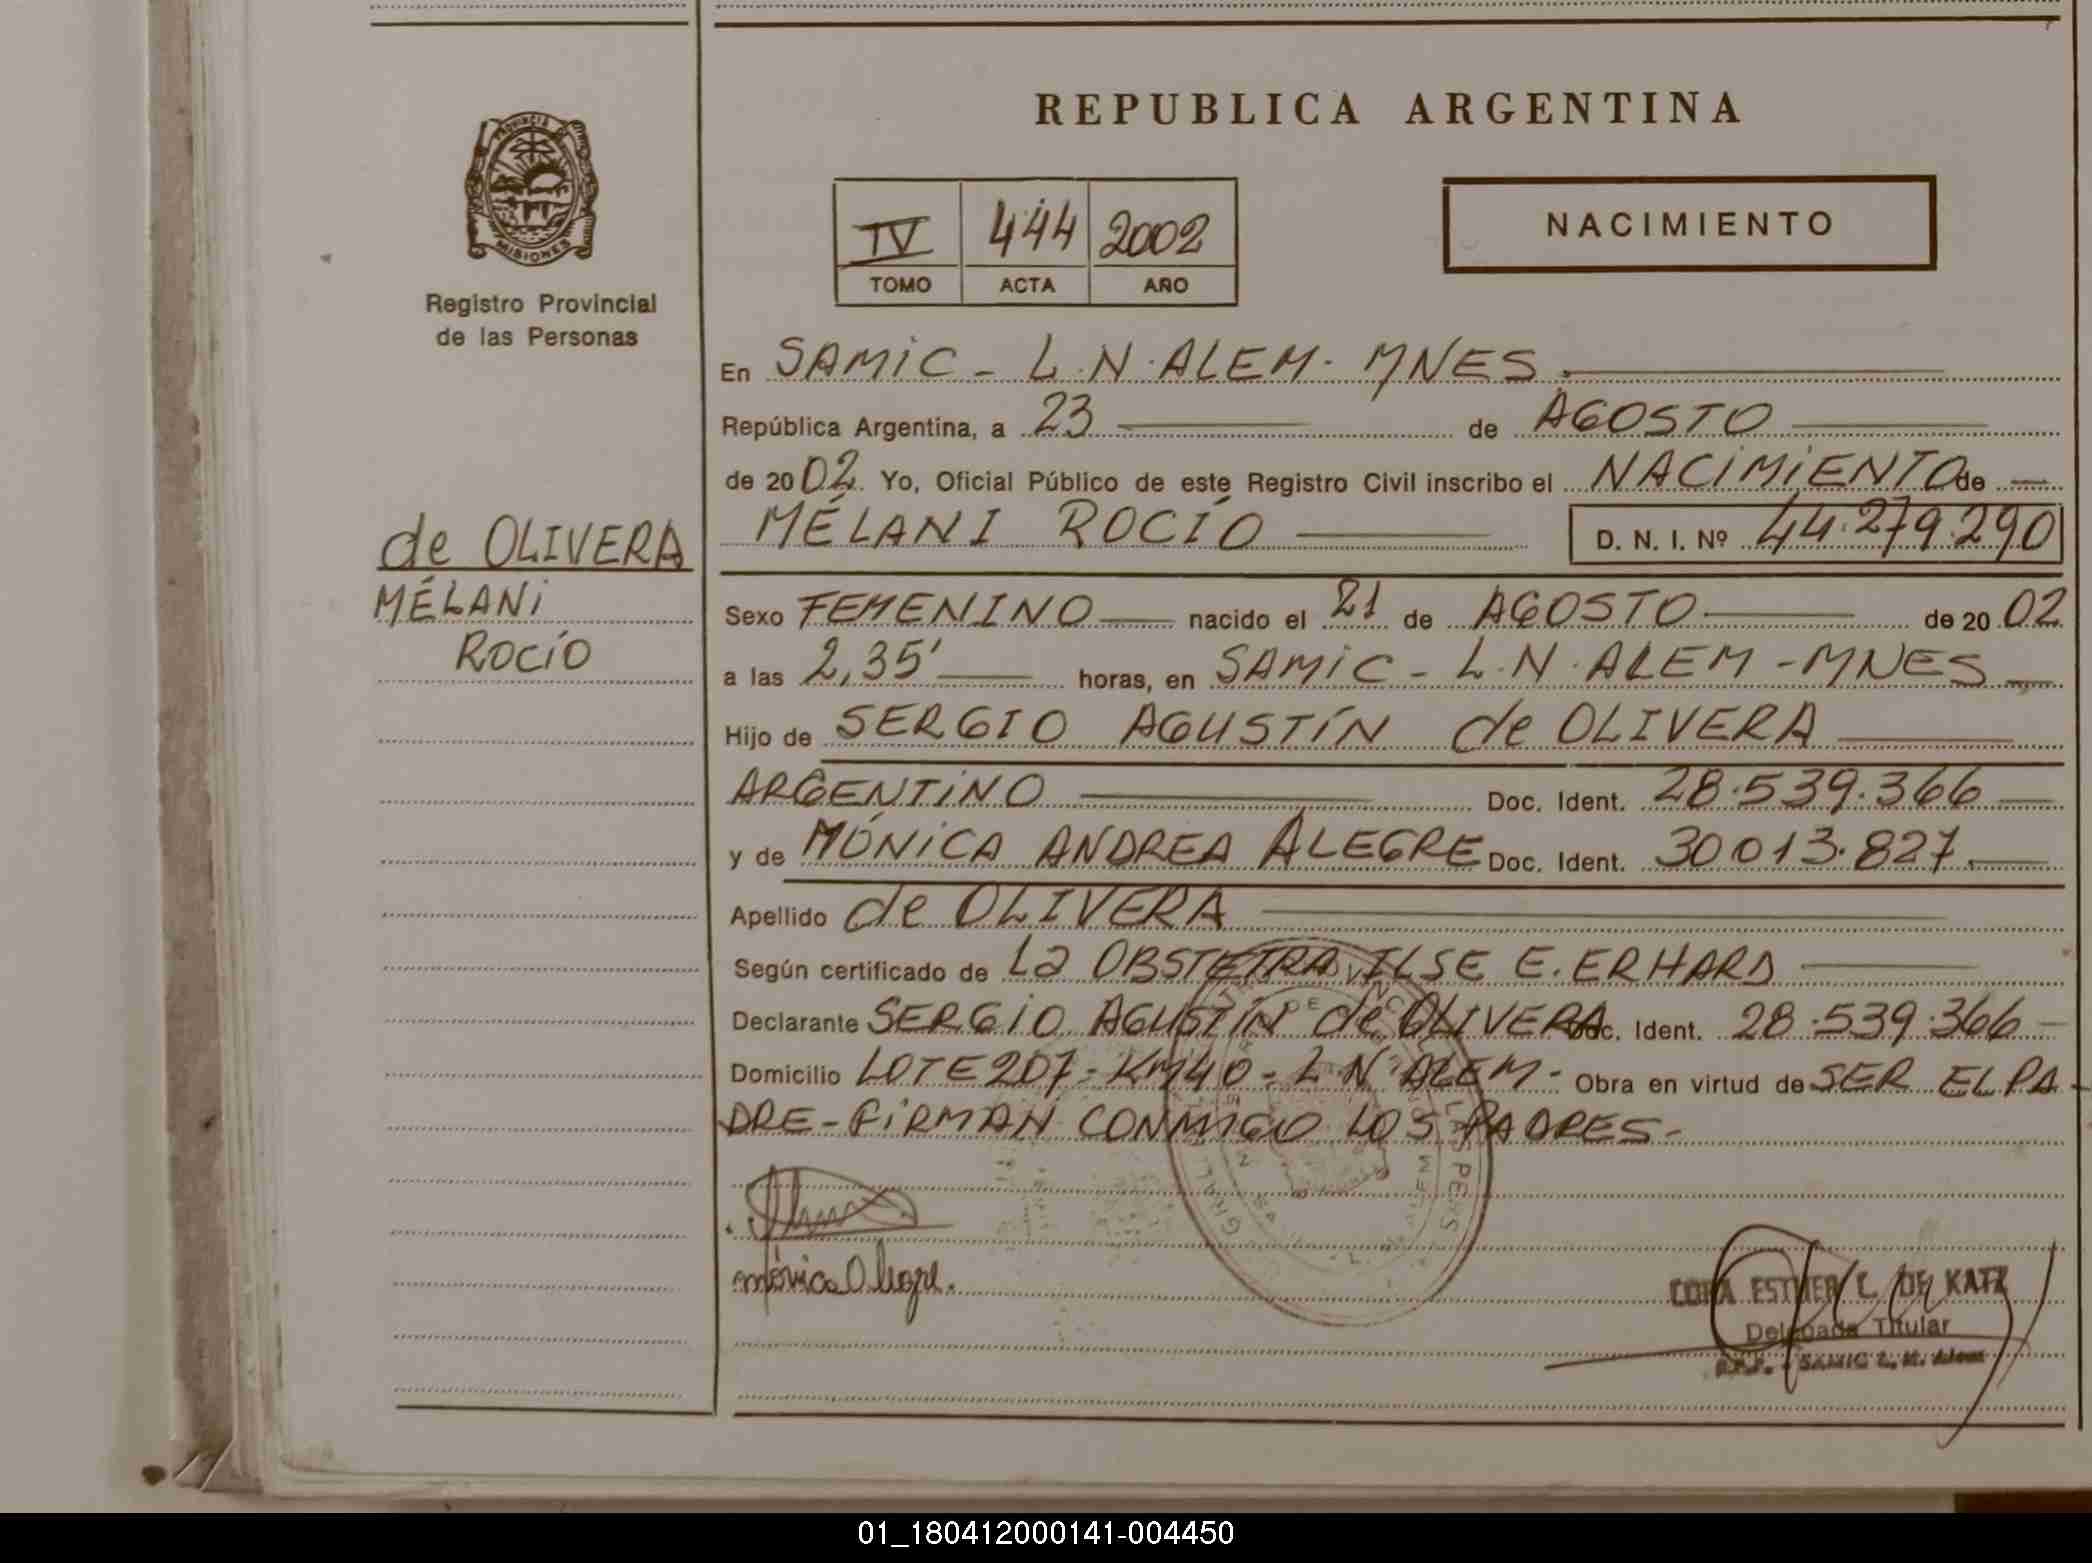 REPUBLICA ARGENTINA
PROVINCIA DE
MISIONES
Registro Provincial
de las Personas
IV 444 2002
TOMO ACTA AÑO
NACIMIENTO
de OLIVERA
MÉLANI
ROCÍO
En SAMIC - L.N. ALEM - MNES.
República Argentina, a 23 de AGOSTO
de 2002. Yo, Oficial Público de este Registro Civil inscribo el NACIMIENTO de
MÉLANI ROCÍO D. N. I. Nº 44.279.290
Sexo FEMENINO nacido el 21 de AGOSTO de 2002
a las 2,35' horas, en SAMIC - L.N. ALEM - MNES
Hijo de SERGIO AGUSTÍN de OLIVERA
ARGENTINO Doc. Ident. 28.539.366
y de MÓNICA ANDREA ALEGRE Doc. Ident. 30013.827.
Apellido de OLIVERA
Según certificado de La OBSTETRA ILSE E. ERHARD
Declarante SERGIO AGUSTÍN de OLIVERA Doc. Ident. 28.539.366
Domicilio LOTE 207 - KM40 - L N ALEM - Obra en virtud de SER EL PA-
DRE - FIRMAN CONMIGO LOS PADRES -
mónica Alegre.
CORA ESTHER C. DE KATZ
Delegada Titular
R.P.P. - SAMIC L. N. Alem
01_180412000141-004450